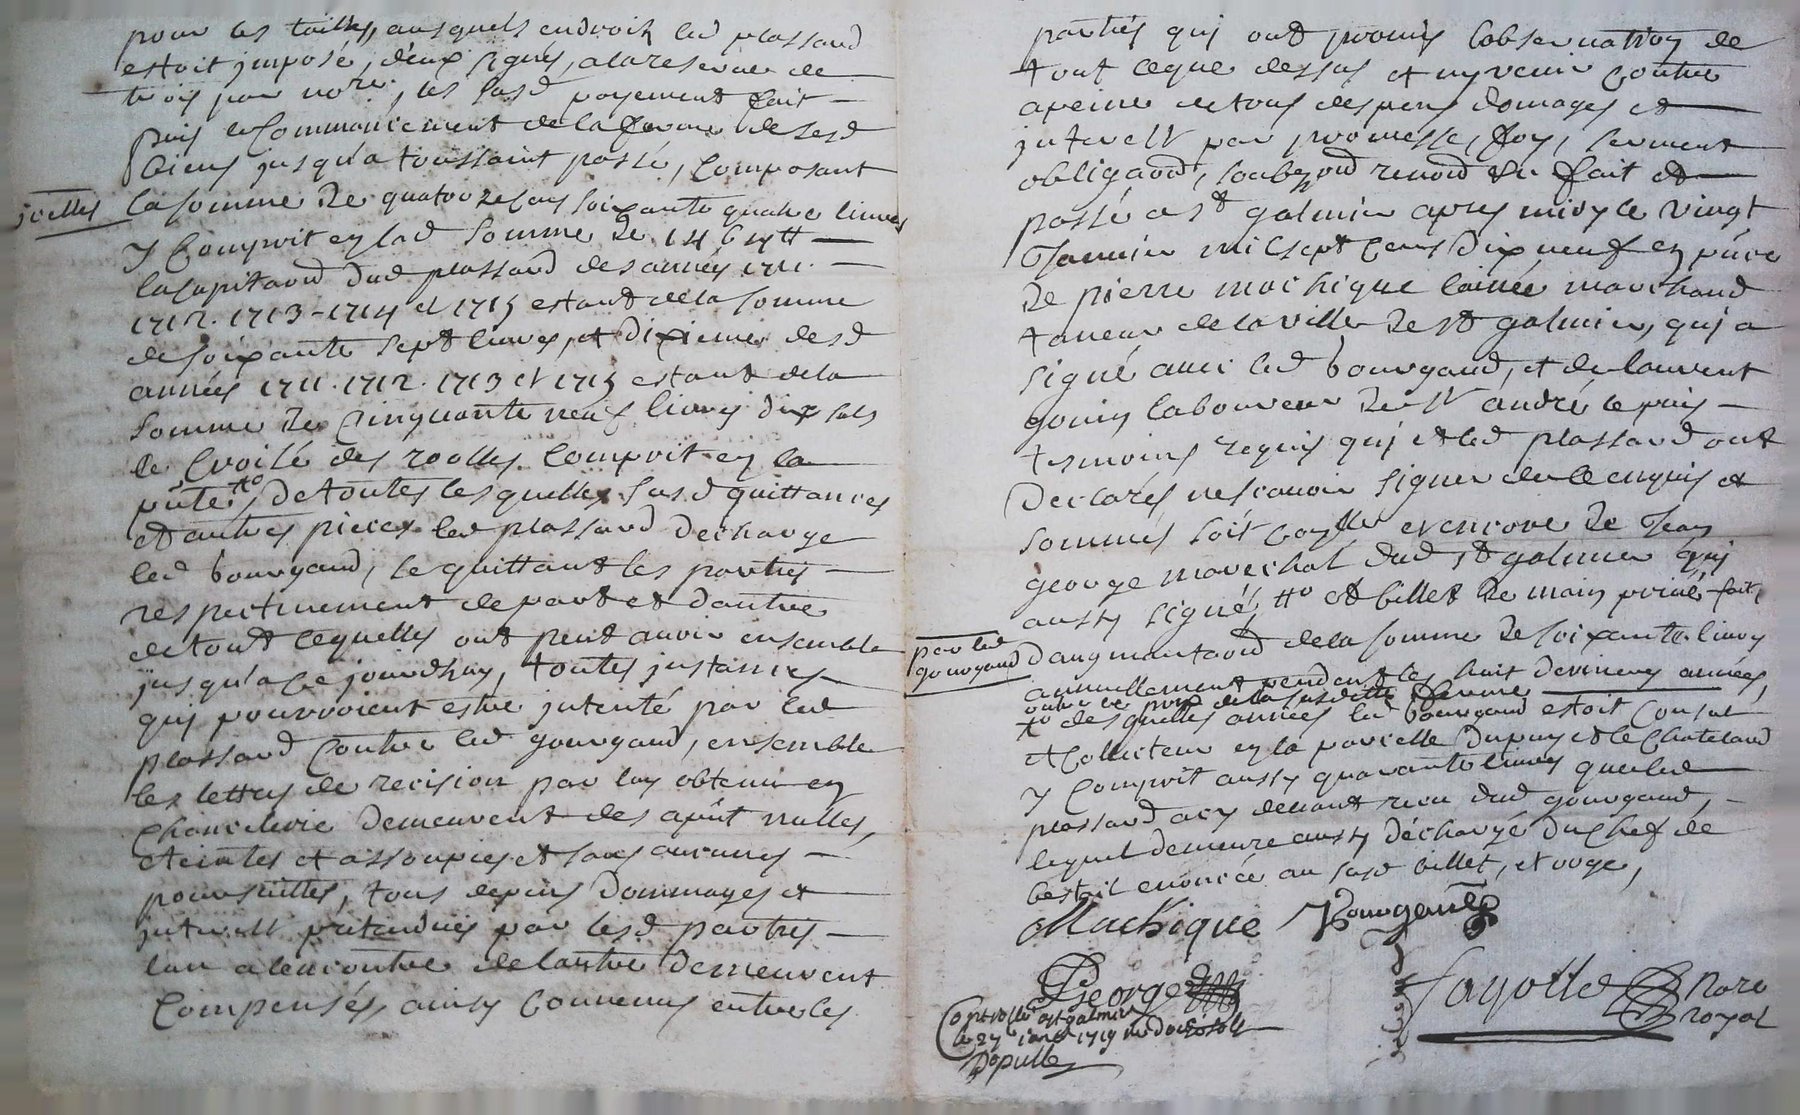 pour les tailles, ausquels endroit led plassard
estoit jmposé, deux signés, alareserve de
trois par nore, les susd payement fait
puis le Commancement de la ferme desesd
biens jusqu'a toussaint passé, Composant
la somme De quatorze cens soixante quatre livres
jcelles
Y Comprit en lad somme De 1464tt
la Capitaon dud plassard des années 1711.
1712. 1713 - 1714 et 1715 estant de la somme
de soixante sept livres, et Dixieme desd
années 1711. 1712. 1713 et 1715 estant de la
somme De Cinquante neuf livres dix sols
le Croisé des roolles Comprit en la
De toutes lesquelles susd quittances
et autres pieces led plassard decharge
led bourgaud, se quittant les parties
respectivement de part et dautre
de tout cequelles ont peut avoir ensemble
jusqu'a ce jourdhuy, toutes jnstances
quj pourroient estre jntenté par led
plassard Contre led gourgaud, ensemble
les lettres de recision par luy obtenue en
Chancelerie demeurent des apnt nulles,
eteintes et assoupies et sans aucunes
poursuittes, tous depens Dommages et
jnterestz prétendües par lesd parties
lun alencontre delautre demeurent
Compensés, ainsy Convenus entre les
parties quj ont promis lobservation de
tout ceque dessus et ny venir Contre
apeine de tous despens domages et
jnterestz par promesse, foy, serment
obligaon, soubzon renon &c fait et
passé a st galmier apres midy le vingt
Janvier mil sept Cens Dix neuf en pñce
De pierre machique lainé marchand
taneur de la ville De st galmier, quj a
signé avec led bourgaud, et de laurent
gonin laboureur De st andré le puis
tesmoins requis quj et led plassard ont
Declarés nescavoir signer de ce enquis et
sommés soit et encore De Jean
george marechal dud st galmier quj
aussy signé, tto et billet De main privé fait
par led
gourgaud
Daugmantaon de la somme De soixante livres
annuellement pendant les huit dernieres années,
outre le prix de la susditte ferme
to desquelles années led bourgaud estoit Consul
et Collecteur en la parcelle Dupuy et le Chateland
Y Comprit aussy quarante livres que led
plassard acy devant receu dud gourgaud,
lequel demeure aussy déchargé du Chef de
Cestoit enoncée au susd billet, et voge,
Machique Bourgaud
George
Fayolle Nore
royal
Controllé a st galmier
le 27e janer 1719
Depulle